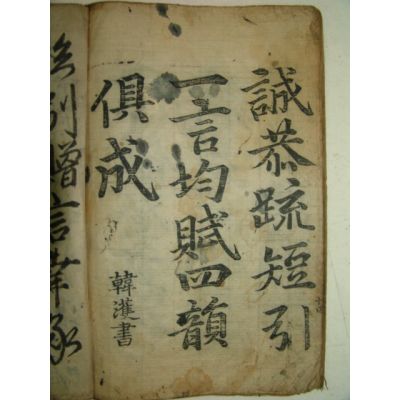 誠恭疏短引
一言均賦四韻
俱成
韓濩書
別贈言幸承